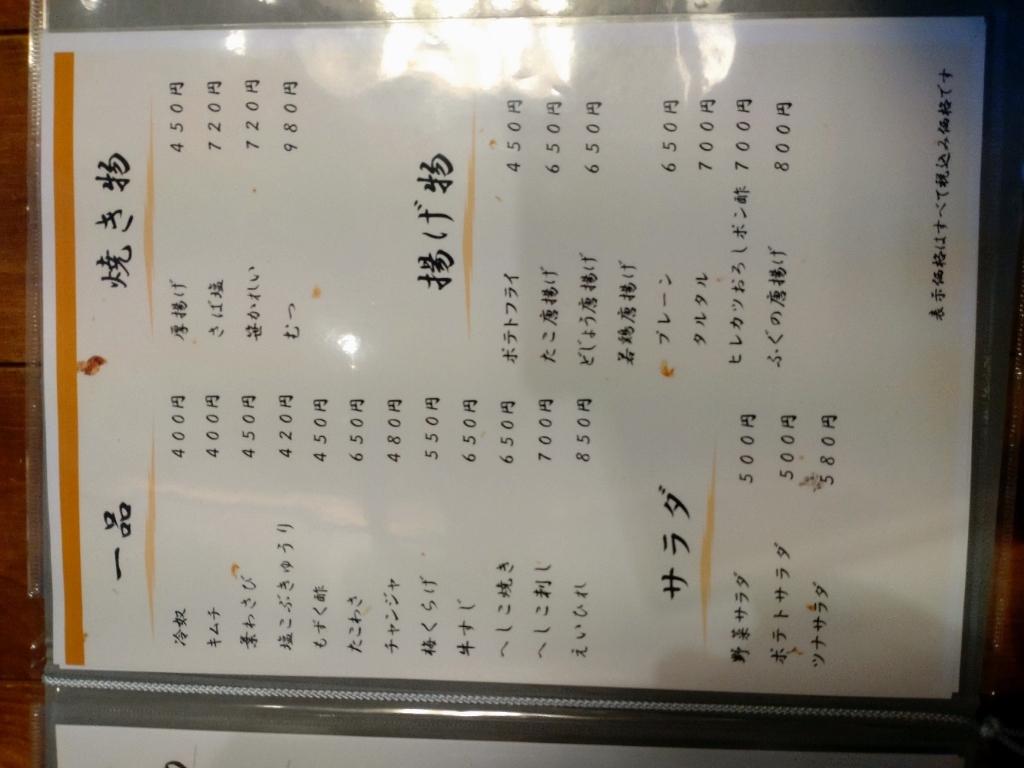 一品
冷奴 400円
キムチ 400円
葉わさび 450円
塩こぶきゅうり 420円
もずく酢 450円
たこわさ 650円
チャンジャ 480円
梅くらげ 550円
牛すじ 650円
へしこ焼き 650円
へしこ刺し 700円
えいひれ 850円
サラダ
野菜サラダ 500円
ポテトサラダ 500円
ツナサラダ 580円
焼き物
厚揚げ 450円
さば塩 720円
笹かれい 720円
むつ 980円
揚げ物
ポテトフライ 450円
たこ唐揚げ 650円
どじょう唐揚げ 650円
若鶏唐揚げ
プレーン 650円
タルタル 700円
ヒレカツおろしポン酢 700円
ふぐの唐揚げ 800円
表示価格はすべて税込み価格です